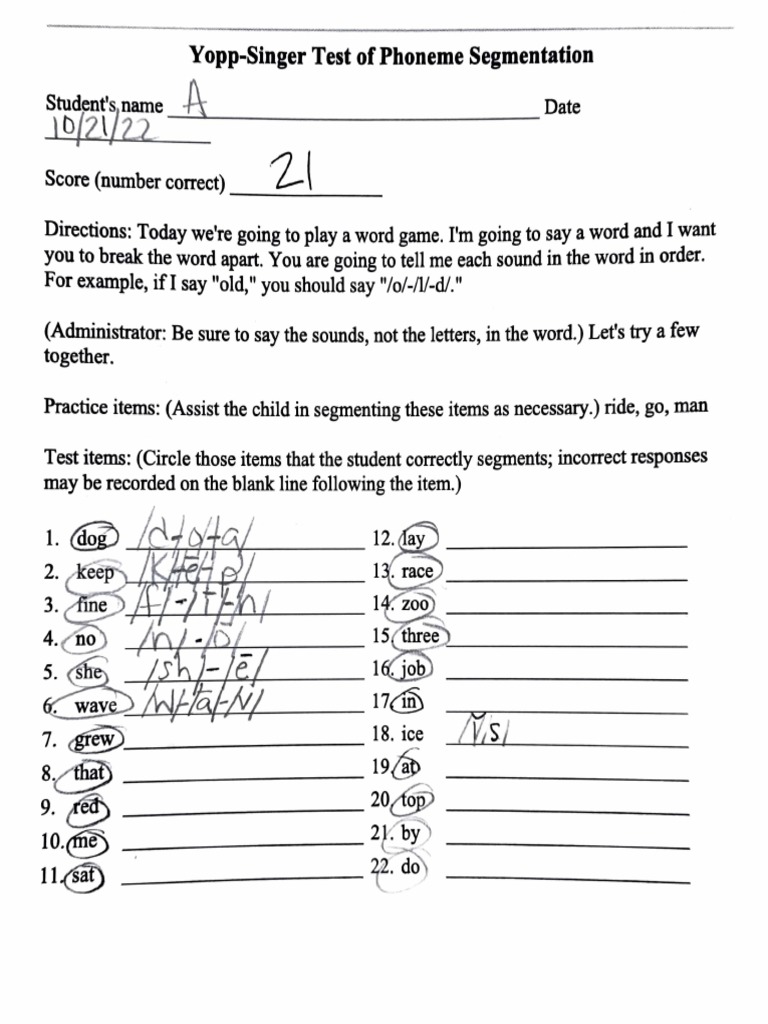 Yopp-Singer Test of Phoneme Segmentation
Student's name A Date
10/21/22
Score (number correct) 21
Directions: Today we're going to play a word game. I'm going to say a word and I want
you to break the word apart. You are going to tell me each sound in the word in order.
For example, if I say "old," you should say "/o/-/l/-d/."
(Administrator: Be sure to say the sounds, not the letters, in the word.) Let's try a few
together.
Practice items: (Assist the child in segmenting these items as necessary.) ride, go, man
Test items: (Circle those items that the student correctly segments; incorrect responses
may be recorded on the blank line following the item.)
1. dog
2. keep /k/-/ē/-/p/
3. fine
4. no /n/-/ō/
5. she /sh/-/ē/
6. wave /w/-/ā/-/v/
7. grew
8. that
9. red
10. me
11. sat
12. lay
13. race
14. zoo
15. three
16. job
17. in
18. ice
19. at
20. top
21. by
22. do